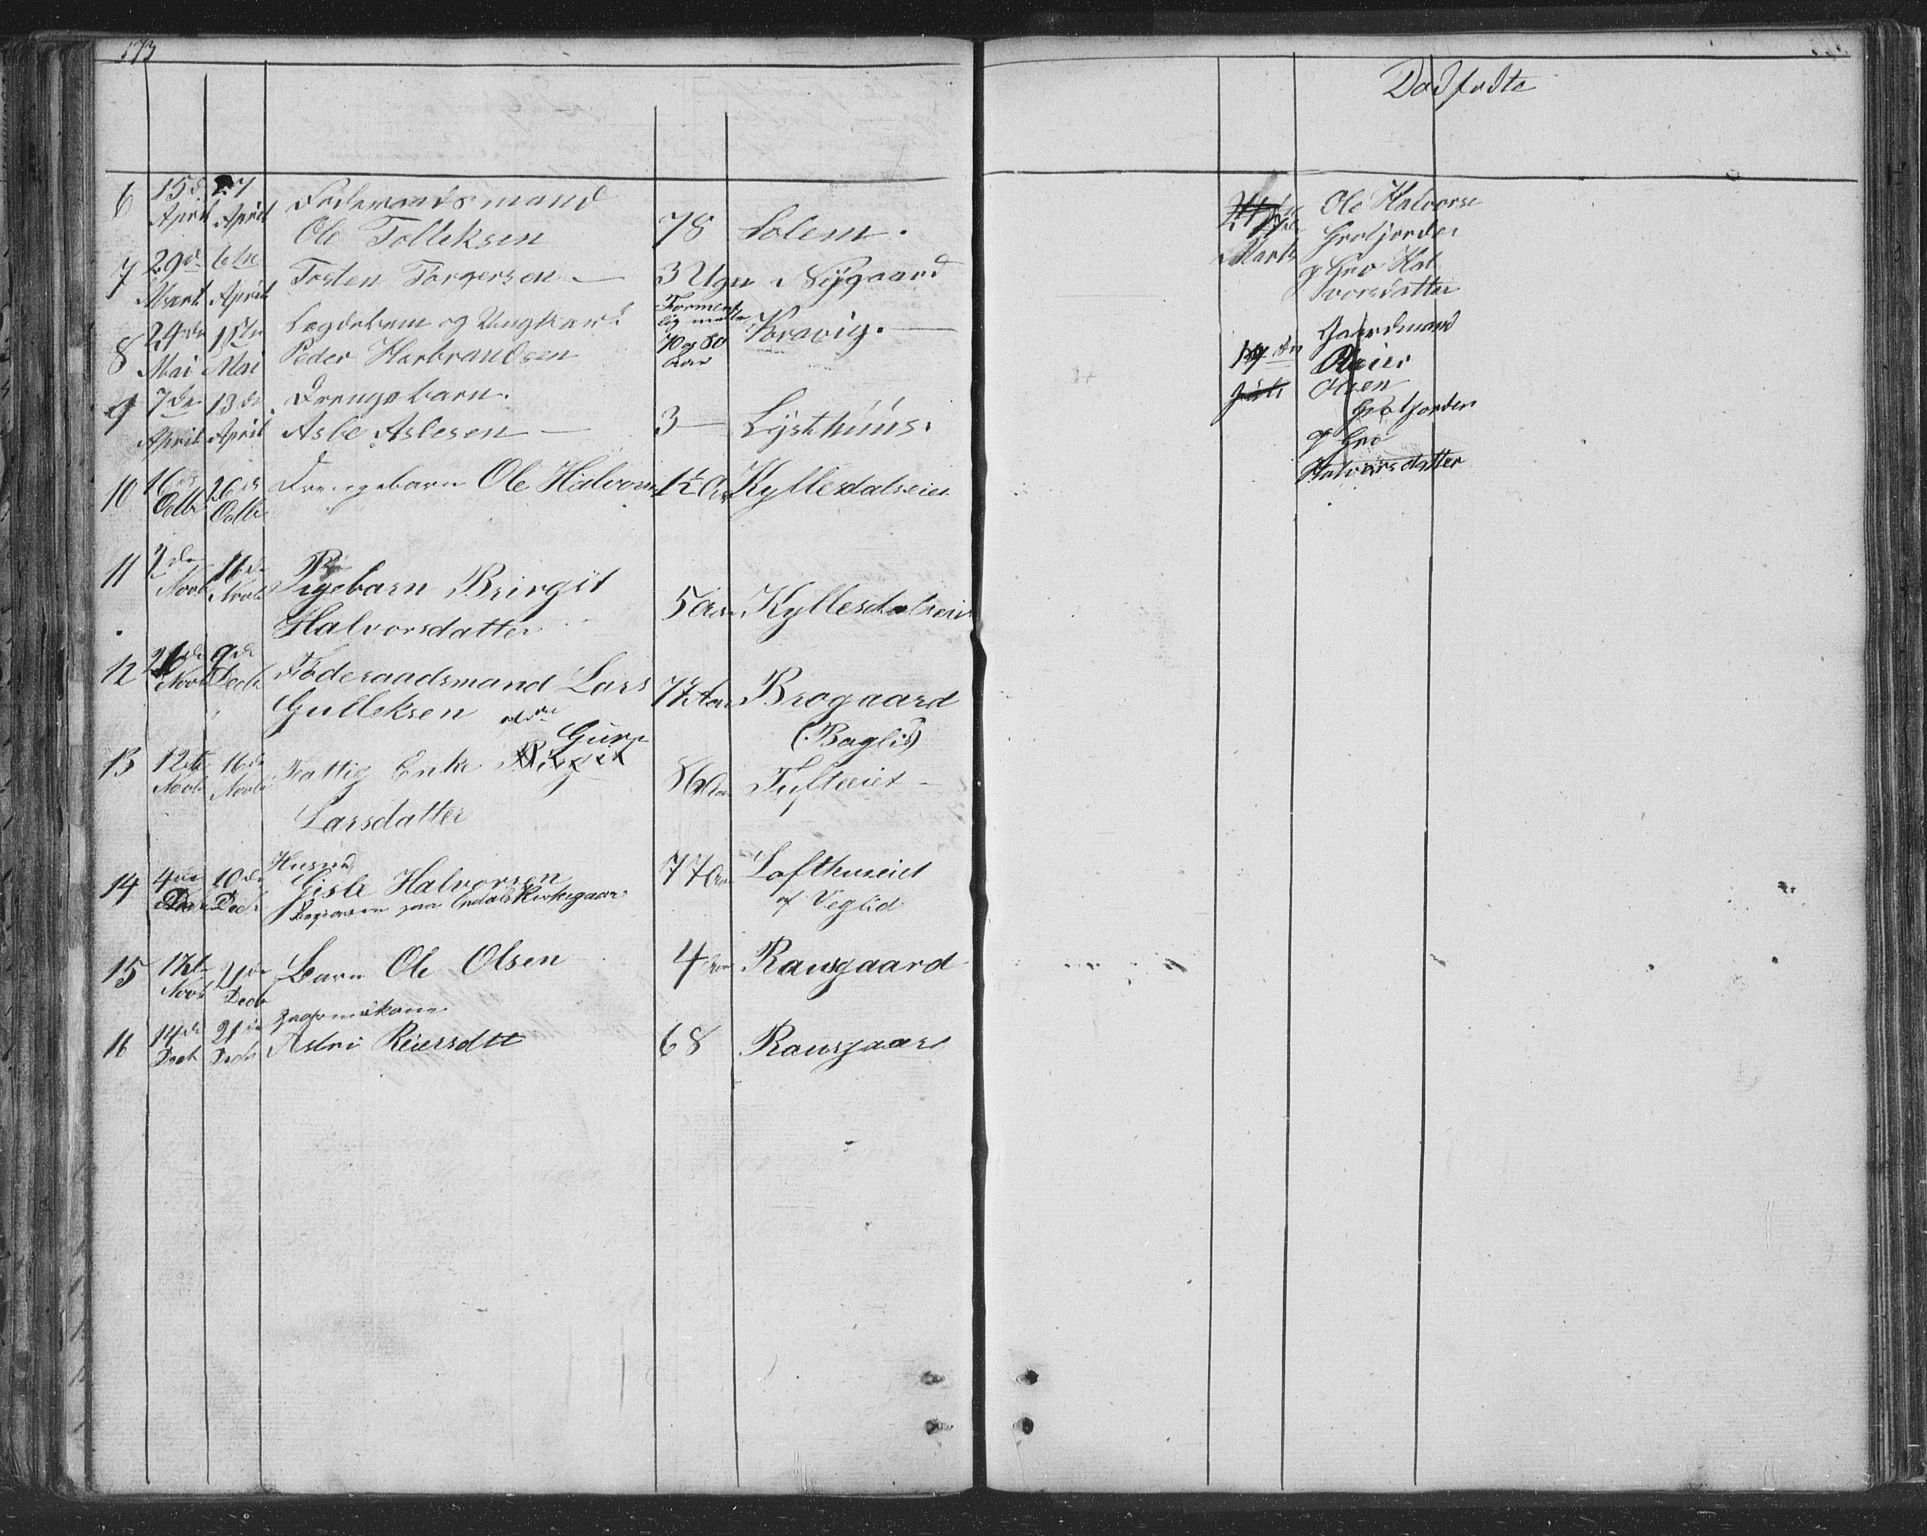 173
6 15de April 27 April Foderaadsmand
Ole Tolleksen 78 Solem.
7 29de Mart 6te April Tosten Torgersen — 3 Ugr Nÿgaard
8 24de Mai 15te Mai Lægdelem og Ungkarl
Peder Harbrandsen Forment-
lig mellem
70 og 80
Aar Kravig. —
9 7de April 13de April Drengebarn.
Asle Aslesen — 3 — Lÿsthüus.
10 16de Octbr 26de Octbr Drengebarn Ole Halvors 1½ Aar Kyllesdalseiet
11 2den Novb 16de Novb Pigebarn Birgit
Halvorsdatter 5 Aar Kyllesdalseiet
12 Novb 9de Decb Föderaadsmand Lars
Gulleksen 77 Aar Brogaard
(Baglid)
13 12te Novb 16de Novb Fattig Enke Birgit Guro
Larsdatter 86 Aar Tufteiet —
14 4de Decb 10de Decb Husmd
Gisle Halvorsen
Begraven paa Kirkegaar 77 Aar Lofthuseiet
af Veglid
15 17de Novb Decb Barn Ole Olsen 4 Aar Ransgaard
16 14de Decb 21de Decb Gaarmakone
Astri Reiersdtt 68 Ransgaar
Dødfødte
Marts Ole Halvorse
Grøtjorde
og Gro Hal
vorsdatter
19de Juli Gaardmand
Reier
Olsen
Grøtjorden
og Gro
Halvorsdatter